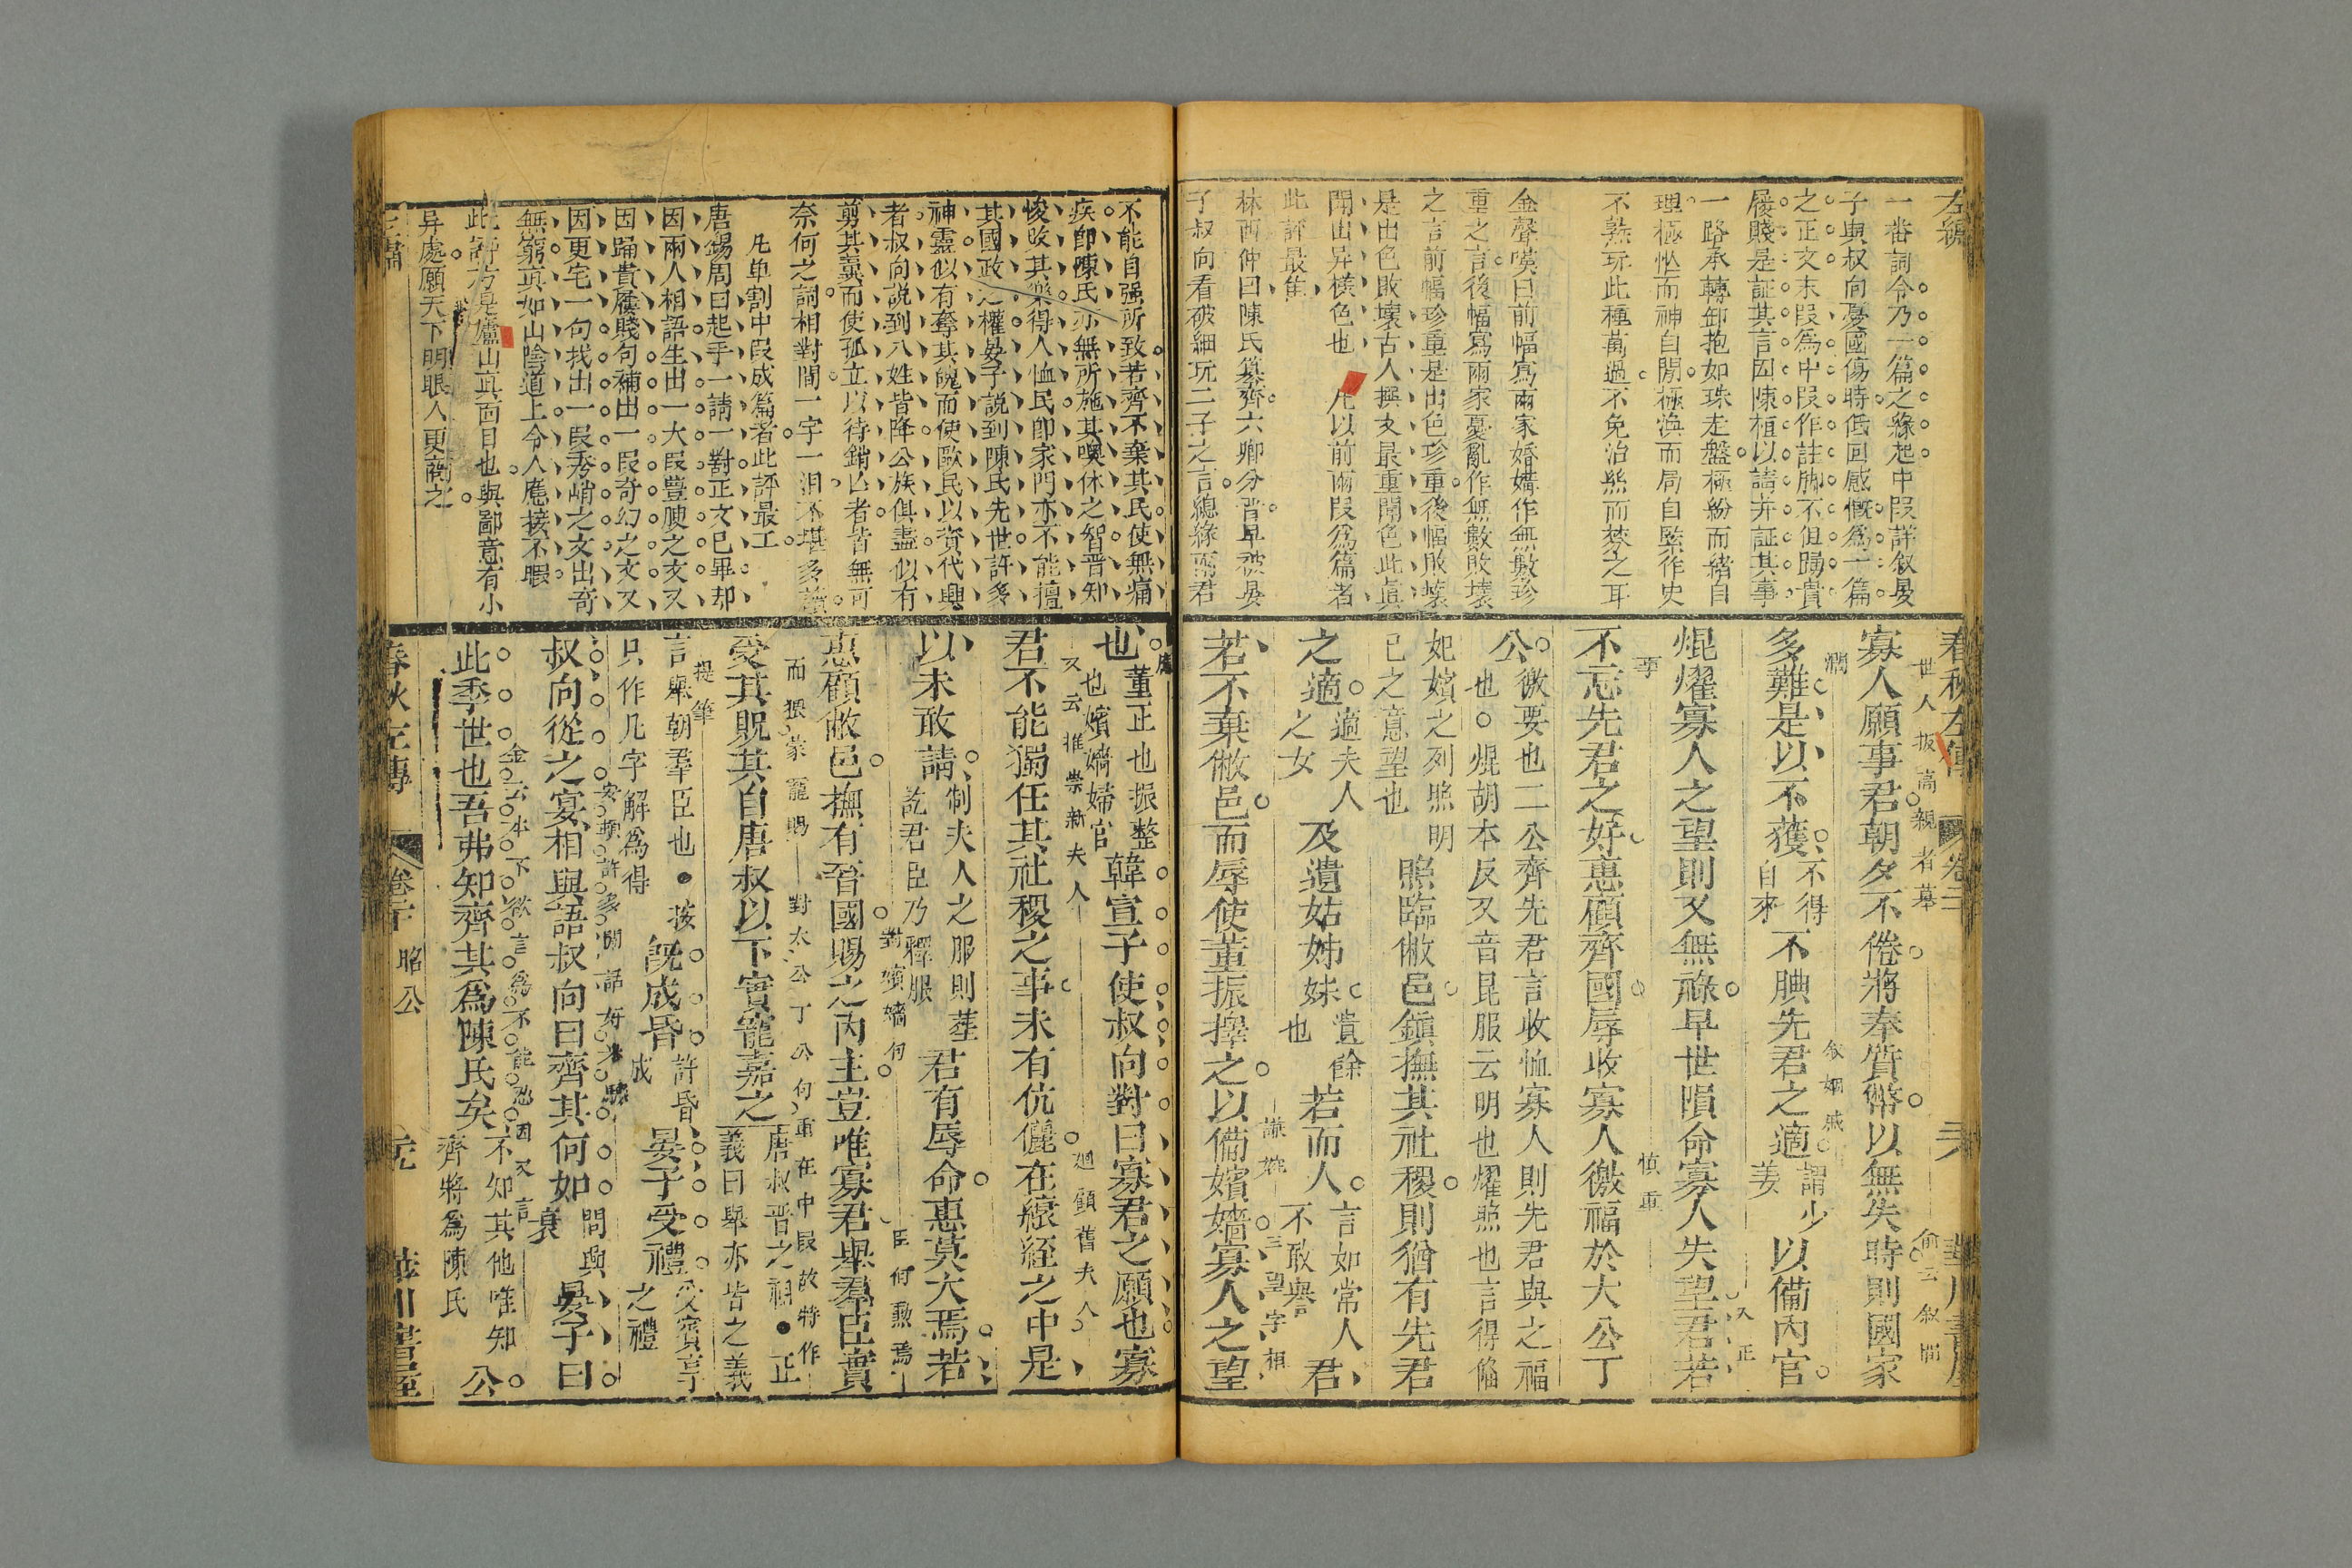 左繡
一番詞令乃一篇之緣起中段詳叙晏
子與叔向憂國傷時低回感慨爲一篇
之正文末段爲中段作註脚不但踊貴
屨賤是証其言因陳桓以請并証其事
一路承轉卸抱如珠走盤極紛而緒自
理極忙而神自閒極渙而局自緊作史
不熟玩此種萬過不免治絲而棼之耳
金聲嘆曰前幅寫兩家婚媾作無數珍
重之言後幅寫兩家憂亂作無數敗壞
之言前幅珍重是出色珍重後幅敗壞
是出色敗壞古人撰文最重閒色此眞
閒出异㨾色也 凡以前兩段爲篇者
此評最雋
林西仲曰陳氏纂齊六卿分晋早被晏
子叔向看破細玩二子之言總緣兩君
春秋左傳 卷二 華川書屋
寡人願事君朝夕不倦將奉質幣以無失時則國家
世人扳高親者摹
俞云叙間
多難是以不獲
不得
自來
不腆先君之適
謂少
姜
以備內官
叙姻戚
焜燿寡人之望則又無祿早世隕命寡人失望君若
又正
不忘先君之好惠顧齊國辱收寡人徼福於大公丁
慎重
公
徼要也二公齊先君言收恤寡人則先君與之福
也焜胡本反又音昆服云明也燿照也言得備
妃嬪之列照明
已之意望也
照臨敝邑鎮撫其社稷則猶有先君
之適
適夫人
之女
及遺姑姊妹
遺餘
也
若而人
言如常人
不敢譽
君
若不棄敝邑而辱使董振擇之以備嬪嬙寡人之望
謙婉
三望字相
不能自强所致若齊不棄其民使無痛
疾即陳氏亦無所施其噢休之智晋知
悛改其樂得人恤民即家門亦不能擅
其國政之權晏子說到陳氏先世許多
神靈似有奪其魄而使歐民以資代興
者叔向說到八姓皆降公族俱盡似有
剪其翼而使孤立以待銷亡者皆無可
奈何之詞相對間一字一泪不堪多讀
凡单割中段成篇者此評最工
唐錫周曰起手一請一對正文已畢却
因兩人相語生出一大段豊腴之文又
因踊貴屨賤句補出一段奇幻之文又
因更宅一句找出一段秀峭之文出奇
無窮真如山陰道上令人應接不暇
此評方是廬山真面目也與鄙意有小
异處願天下明眼人更商之
也
董正也振整
也嬪嬙婦官
韓宣子使叔向對曰寡君之願也寡
又云推崇新夫人
廻顧舊夫人
君不能獨任其社稷之事未有伉儷在縗絰之中是
以未敢請
制夫人之服則葬
訖君臣乃釋服
君有辱命惠莫大焉若
對嬪嬙句
臣何勲焉
惠顧敝邑撫有晉國賜之內主豈唯寡君舉羣臣實
而猥蒙寵賜
對太公丁公句重在中段故特作
受其貺其自唐叔以下實寵嘉之
唐叔晋之祖正
義曰舉亦皆之義
提筆
言舉朝羣臣也按
只作几字解爲得
既成昏
許昏
成
晏子受禮
受賓享
之禮
叔向從之宴相與語叔向曰齊其何如
問興
衰
晏子曰
此季世也吾弗知齊其爲陳氏矣
不知其他唯知
齊將爲陳氏
公
春秋左傳 昭公 華川書屋